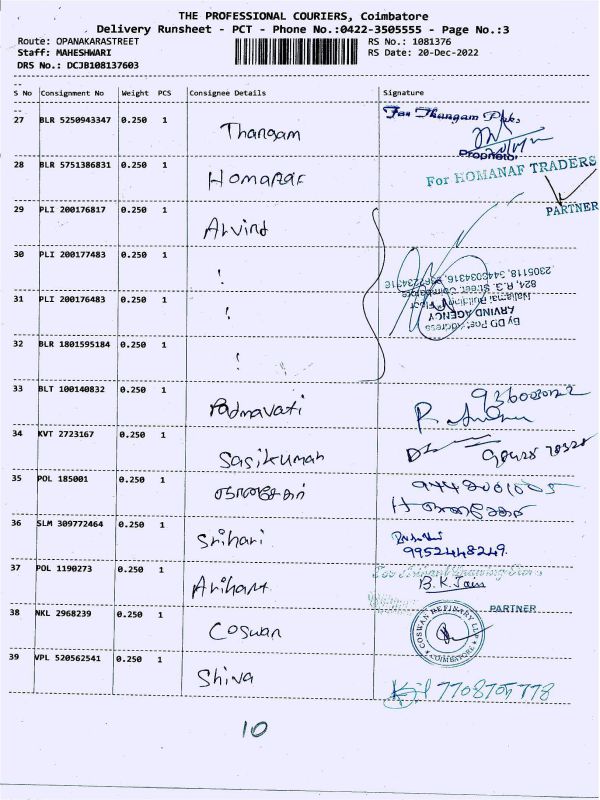 THE PROFESSIONAL COURIERS, Coimbatore
Delivery Runsheet - PCT - Phone No.:0422-3505555 - Page No.:3
Route: OPANAKARASTREET
RS No.: 1081376
Staff: MAHESHWARI
RS Date: 20-Dec-2022
DRS No.: DCJB108137603
S No Consignment No Weight PCS Consignee Details Signature
27 BLR 5250943347 0.250 1 Thangam For Thangam
Proprietor
28 BLR 5751386831 0.250 1 Homanaf For HOMANAF TRADERS
PARTNER
29 PLI 200176817 0.250 1 Arvind
30 PLI 200177483 0.250 1
31 PLI 200176483 0.250 1
ARVIND AGENCY
32 BLR 1801595184 0.250 1
33 BLT 100140832 0.250 1 Padmavati
34 KVT 2723167 0.250 1 Sasikumar
35 POL 185001 0.250 1
36 SLM 309772464 0.250 1 Srihari
9952448249.
37 POL 1190273 0.250 1 Arihant
B.K.Jain
PARTNER
38 NKL 2968239 0.250 1 Coswan COSWAN REFINARY LLP
COIMBATORE
39 VPL 520562541 0.250 1 Shiva 7708705778
10